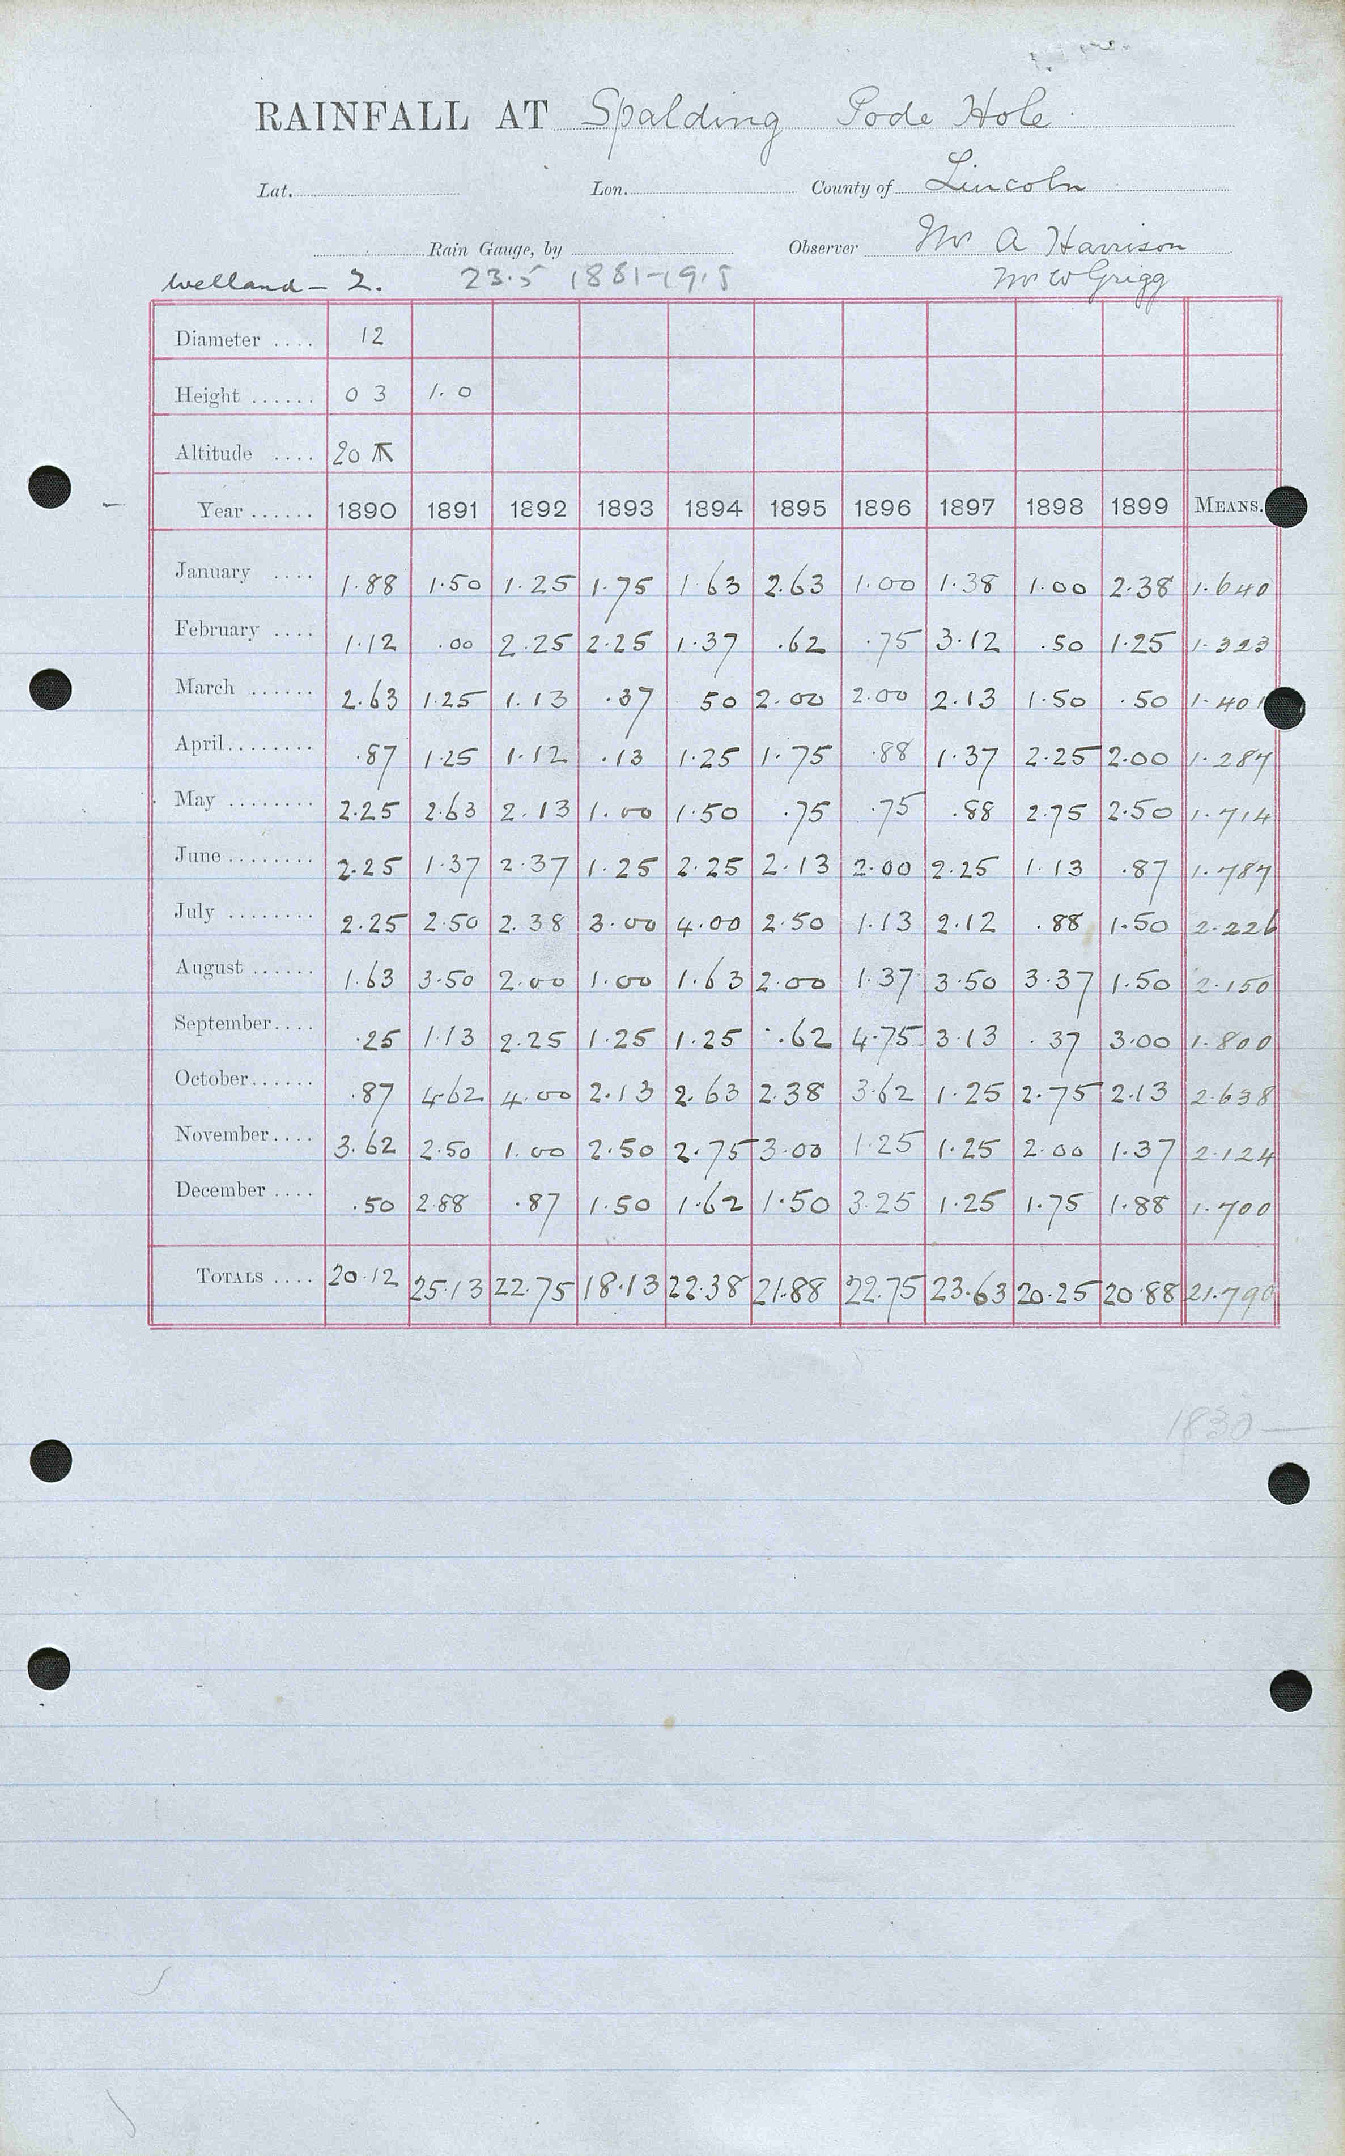 RAINFALL AT Spalding Pode Hole
Lat. Lon. County of Lincoln
Rain Gauge, by Observer Mr A Harrison
Welland - 2. 23.5 1881-1915 Mr W Grigg
Diameter .... 12
Height ...... 0 3 1.0
Altitude .... 20
Year ...... 1890 1891 1892 1893 1894 1895 1896 1897 1898 1899 MEANS.
January .... 1.88 1.50 1.25 1.75 1.63 2.63 1.00 1.38 1.00 2.38 1.640
February .... 1.12 .00 2.25 2.25 1.37 .62 .75 3.12 .50 1.25 1.323
March ...... 2.63 1.25 1.13 .37 50 2.00 2.00 2.13 1.50 .50 1.401
April........ .87 1.25 1.12 .13 1.25 1.75 .88 1.37 2.25 2.00 1.287
May ........ 2.25 2.63 2.13 1.00 1.50 .75 .75 .88 2.75 2.50 1.714
June ........ 2.25 1.37 2.37 1.25 2.25 2.13 2.00 2.25 1.13 .87 1.787
July ........ 2.25 2.50 2.38 3.00 4.00 2.50 1.13 2.12 .88 1.50 2.226
August ...... 1.63 3.50 2.00 1.00 1.63 2.00 1.37 3.50 3.37 1.50 2.150
September.... .25 1.13 2.25 1.25 1.25 .62 4.75 3.13 .37 3.00 1.800
October...... .87 4.62 4.00 2.13 2.63 2.38 3.62 1.25 2.75 2.13 2.638
November.... 3.62 2.50 1.00 2.50 2.75 3.00 1.25 1.25 2.00 1.37 2.124
December .... .50 2.88 .87 1.50 1.62 1.50 3.25 1.25 1.75 1.88 1.700
TOTALS .... 20.12 25.13 22.75 18.13 22.38 21.88 22.75 23.63 20.25 20.88 21.790
1830 —